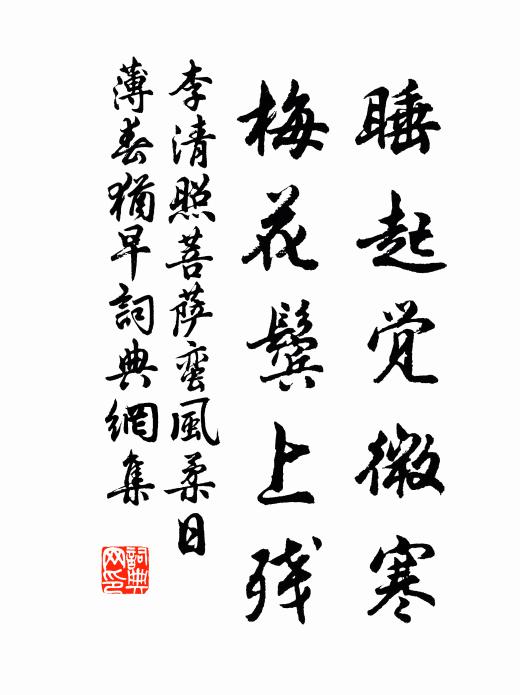 睡起觉微寒
梅花鬓上残
李清照菩萨蛮風柔日
薄春犹早詞典網集
詞典网印